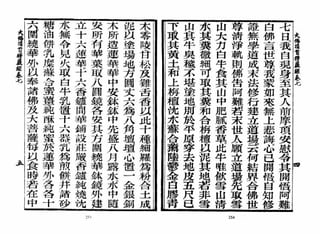 大佛頂首楞嚴經卷七
四
七日我自現身至其人前摩頂安慰令其開悟阿難
白佛言世尊我蒙如來無上悲誨心已開悟自知修
證無學道成末法修行建立道場云何結界合佛世
尊清淨軌則佛告阿難若末世人願立道場先取雪
山大力白牛食其山中肥膩香草此牛唯飲雪山清
水其糞微細可取其糞和合栴檀以泥其地若非雪
山其牛臭穢不堪塗地別於平原穿去地皮五尺已
下取其黃土和上栴檀沈水蘇合薰陸鬱金白膠青
木零陵甘松及雞舌香以此十種細羅為粉合土成
泥以塗場地方圓丈六為八角壇壇心置一金銀銅
木所造蓮華華中安鉢鉢中先盛八月露水水中隨
安所有華葉取八圓鏡各安其方圍繞華鉢鏡外建
立十六蓮華十六香鑪間華鋪設莊嚴香鑪純燒沈
水無令見火取白牛乳置十六器乳為煎餅并諸砂
糖油餅乳糜蘇合蜜薑純酥純蜜於蓮華外各各十
六圍繞華外以奉諸佛及大菩薩每以食時若在中
大佛頂首楞嚴經卷七
五